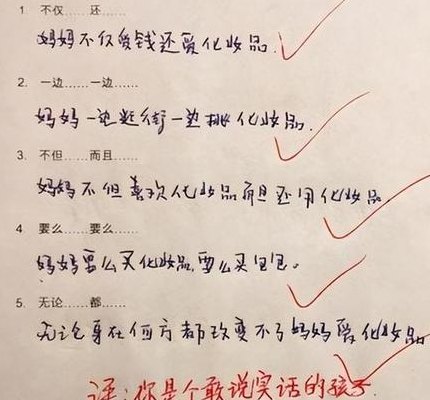 1 不仅……还……
妈妈不仅爱钱还爱化妆品.
2. 一边……一边……
妈妈一边逛街一边挑化妆品.
3. 不但……而且……
妈妈不但喜欢化妆品而且还用化妆品
4 要么……要么……
妈妈要么买化妆品,要么买包包。
5. 无论……都……
无论身在何方都改变不了妈妈爱化妆品
评:你是个敢说实话的孩子.